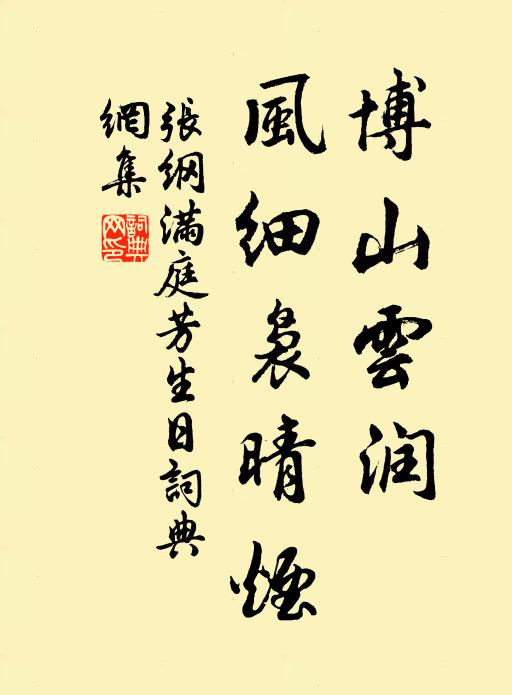 博山雲润
風細裊晴煙
張綱满庭芳生日詞典
網集
詞典網印